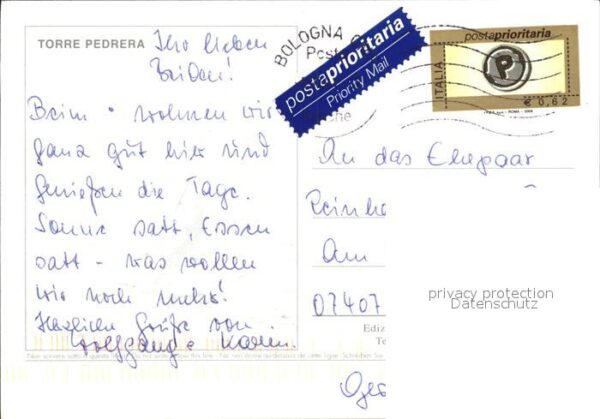 TORRE PEDRERA
Ihr lieben
Beiden!
Beim wohnen wir
ganz gut hier und
genießen die Tage.
Sonne satt, Essen
satt - was wollen
wir noch mehr!
Herzliche Grüße von
Wolfgang + Karin.
BOLOGNA
postaprioritaria
Priority Mail
postaprioritaria
ITALIA
P
€ 0,62
An das Ehepaar
Reinh
Am
07407
privacy protection
Datenschutz
Ediz
Te
Ger